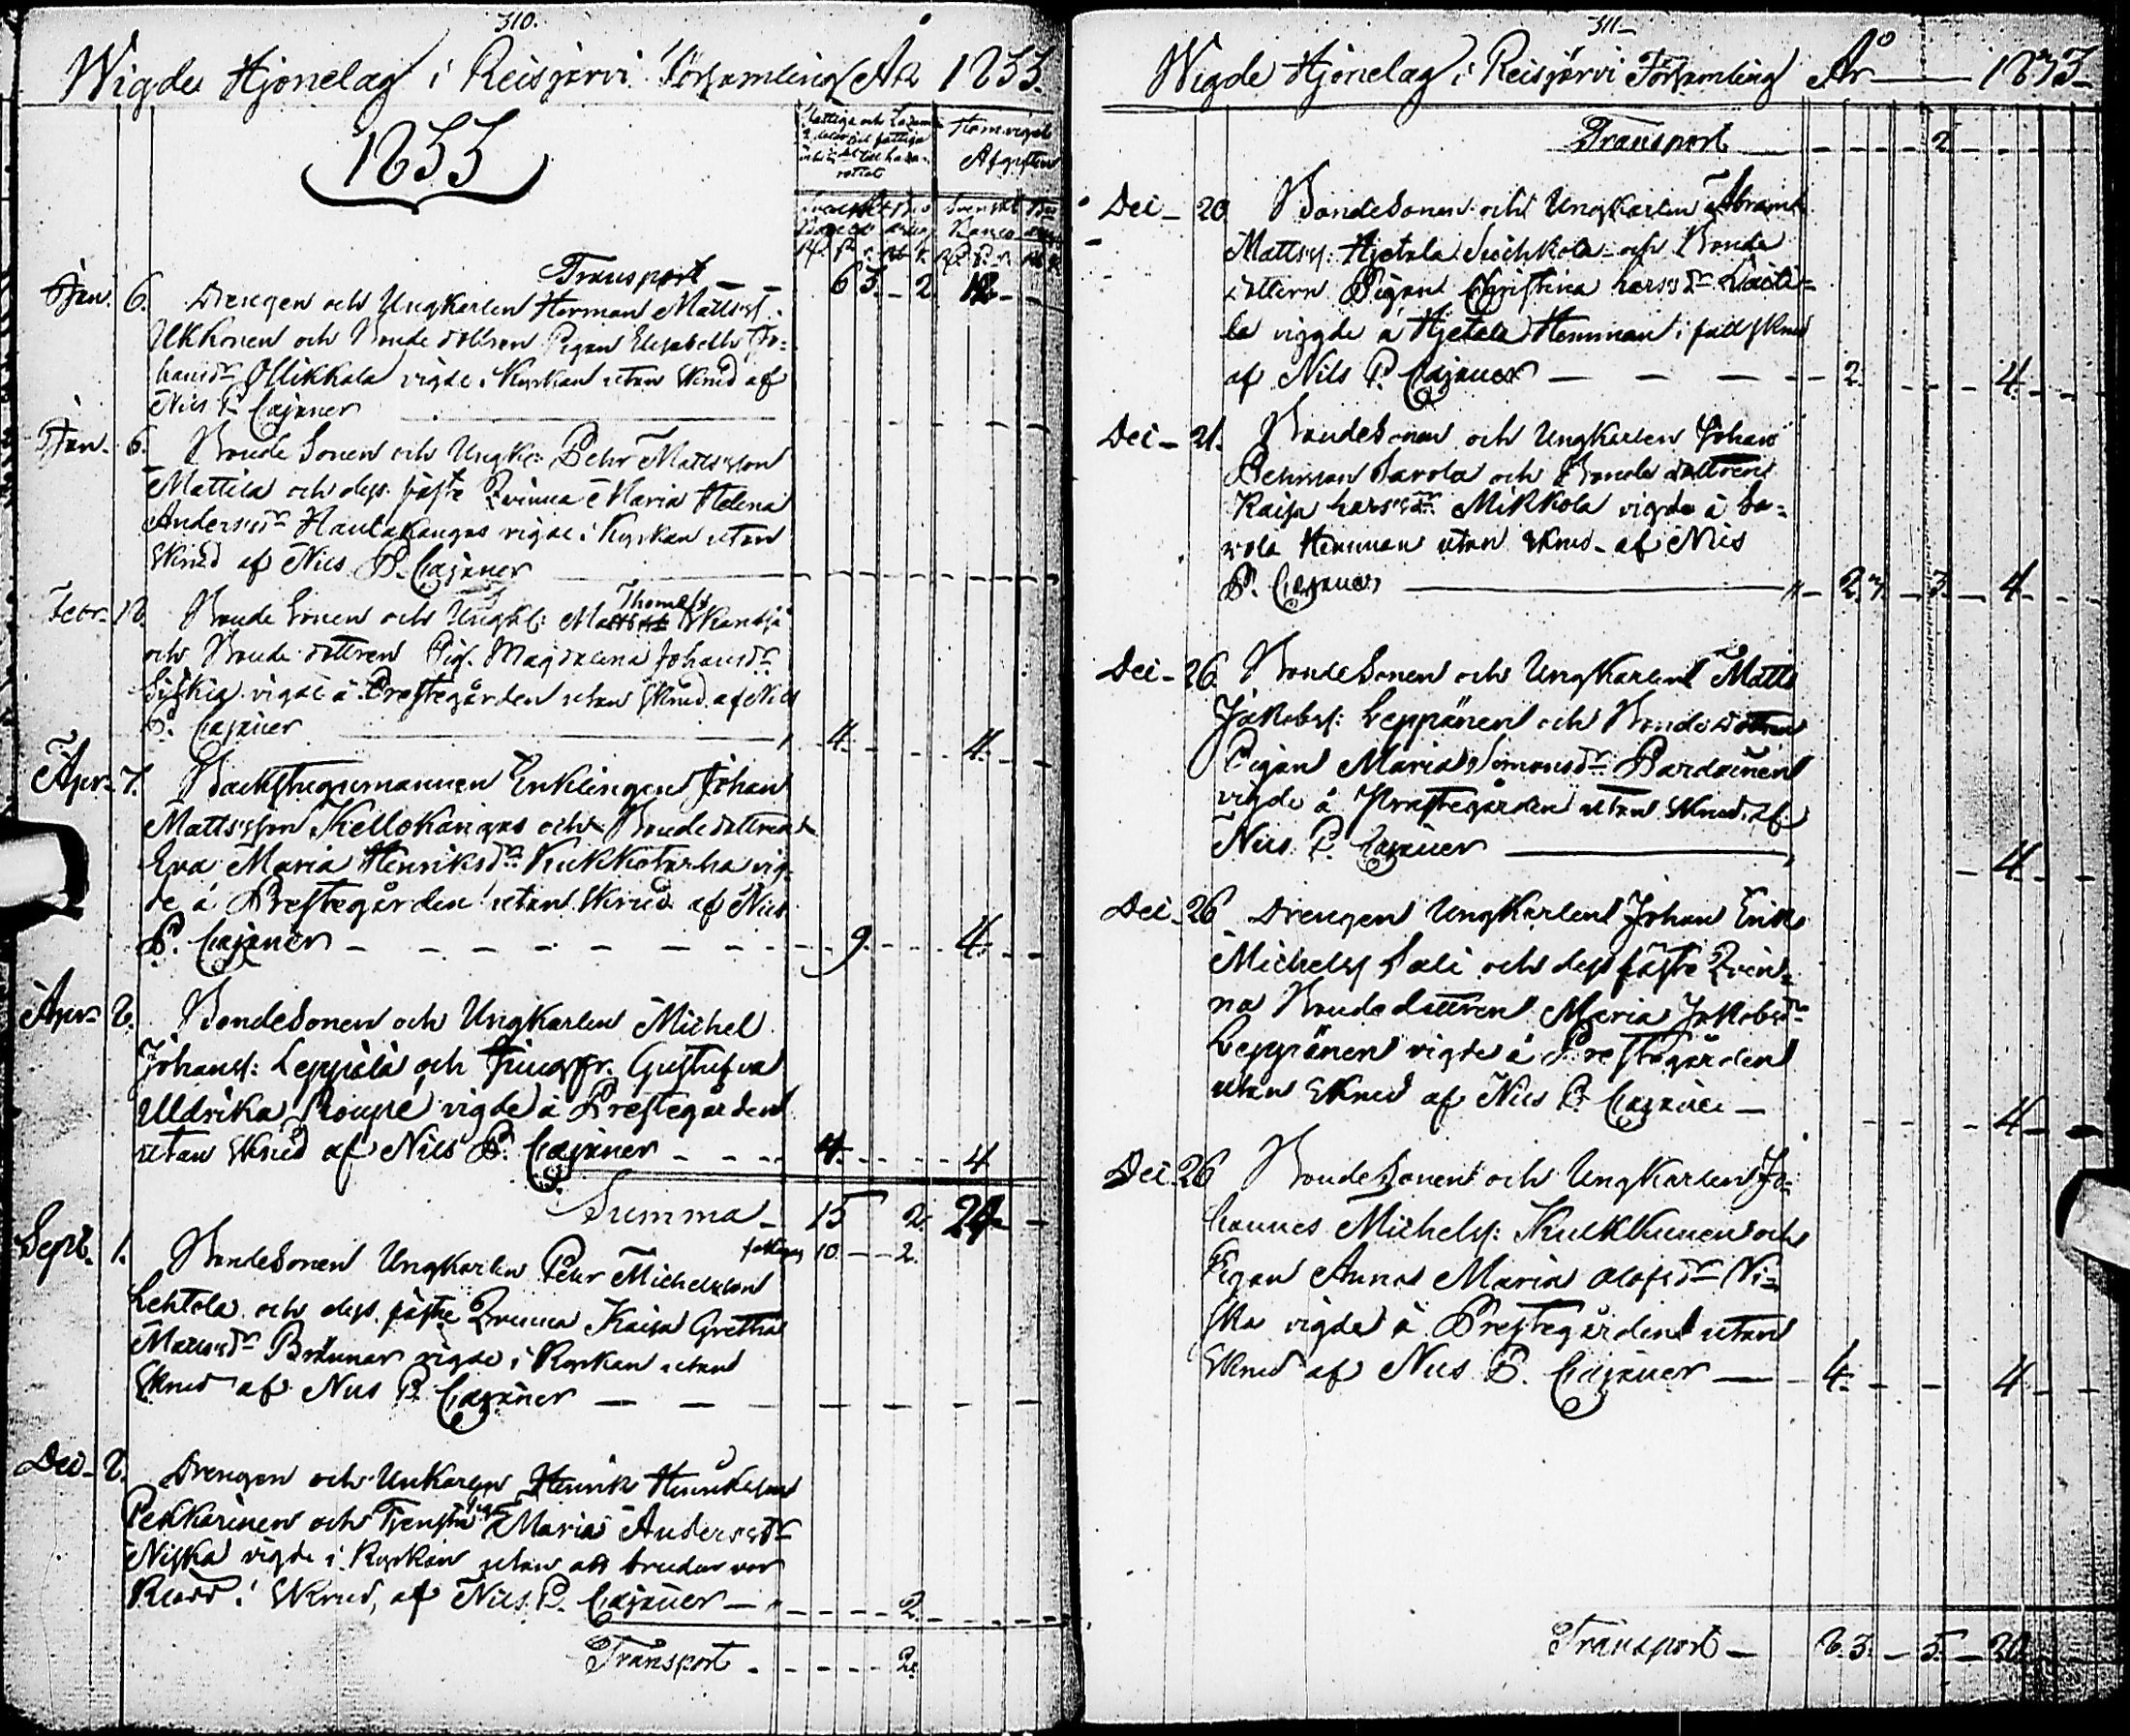 310.
Wigde Hjonelag i Reisjärvi Församling År 1833.
1833
Hemvigsels
Afgiften
Transport 6 3. - 2. 12
Jan. 6. Drengen och Ungkarlen Herman Mattss.
Ukkonen och Bonde dottren Pigan Elisabeth Jo=
hansdr Ollikkala vigde i Kyrkan utan skrud af
Nils P. Cajaner
Jan. 6. Bonde Sonen och Ungk: Pehr Mattsson
Mattila och dess fäste Qvinna Maria Helena
Andersdr Hautakangas vigde i Kyrkan utan
Skrud af Nils P. Cajaner
Febr. Bonde Sonen och Ungk: Thomass
och Bonde dottren Pig. Magdalena Johansdr
vigde å Prestegården utan skrud af Nils
P. Cajaner 4. 4.
Apr. 7. Backstugumannen Enklingen Johan
Mattsson Kellokangas och Bondedottren
Eva Maria Henriksdr Kukkotarha vig=
de å Prestegården utan Skrud af Nils
P. Cajaner 9. 4.
Apr. BondeSonen och Ungkarlen Michel
Johanss: Leppälä och Jungfr. Gustafva
Uldrika Roupe vigde å Prestegården
utan Skrud af Nils P. Cajaner 4. 4
Summa 15 2. 24
10. - 2.
Sept. 1. BondeSonen Ungkarlen Pehr Michelsson
Lehtola och dess fäste Qvinna Kaisa Gretha
Mattsdr Brännar vigde i Kyrkan utan
Skrud af Nils P. Cajaner
Dec. Drengen och Unkarlen Henrik Henriksson
Pekkarinen och Tjenste Maria Andersdr
Niska vigde i Kyrkan utan att bruden var
Klädd i Skrud, af Nils P. Cajaner 2.
Transport 2.
311
Wigde Hjonelag i Reisjärvi Församling År 1833
Transport 2
Dec. 20 BondeSonen och Ungkarlen Abram
Mattss: Hjetala och Bonde
dottren Pigan Christina Larsdr
la vigde å Hjetala Hemman i full skrud
af Nils P. Cajaner 2. 4.
Dec. 21. BondeSonen och Ungkarlen Johan
Pehrsson Savola och Bonde dottren
Kaisa Larsdr Mikkola vigde å Sa=
vola Hemman utan Skrud af Nils
P. Cajaner 2. 3. 4.
Dec. 26. BondeSonen och Ungkarlen Matts
Jakobss: Leppänen och Bondedottren
Pigan Maria Simonsdr Pardainen
vigde å Prestegården utan Skrud af
Nils P. Cajaner 4.
Dec. 26 Drengen Ungkarlen Johan Erik
Michelss Sali och dess fäste Qvin=
na Bondedottren Maria Jakobsdr
Leppänen vigde å Prestegården
utan Skrud af Nils P. Cajaner 4
Dec. 26 BondeSonen och Ungkarlen Jo=
hannes Michelss: Kukkunen och
Pigan Anna Maria Olofsdr Ni=
ska vigde å Prestegården utan
Skrud af Nils P. Cajaner 4. 4
Transport 8. 3. 5. 20